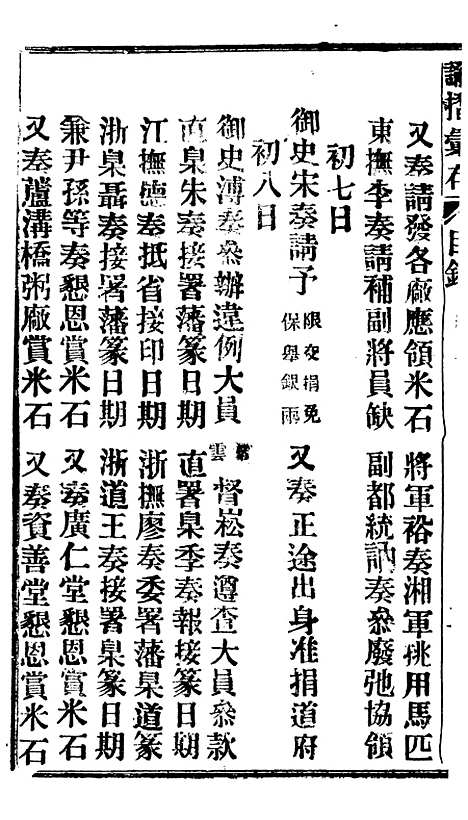 諭摺彙存 目錄
又奏請發各廠應領米石 將軍裕奏湘軍挑用馬匹
東撫李奏請補副將員缺 副都統訥奏叅廢弛協領
初七日
御史宋奏請予限交捐免保舉銀兩 又奏正途出身准捐道府
初八日
御史溥奏叅辦違例大員 雲貴督崧奏遵查大員叅款
直臬朱奏接署藩篆日期 直署臬季奏報接篆日期
江撫德奏抵省接印日期 浙撫廖奏委署藩臬道篆
浙臬聶奏接署藩篆日期 浙道王奏接署臬篆日期
兼尹孫等奏懇恩賞米石 又奏廣仁堂懇恩賞米石
又奏蘆溝橋粥廠賞米石 又奏資善堂懇恩賞米石